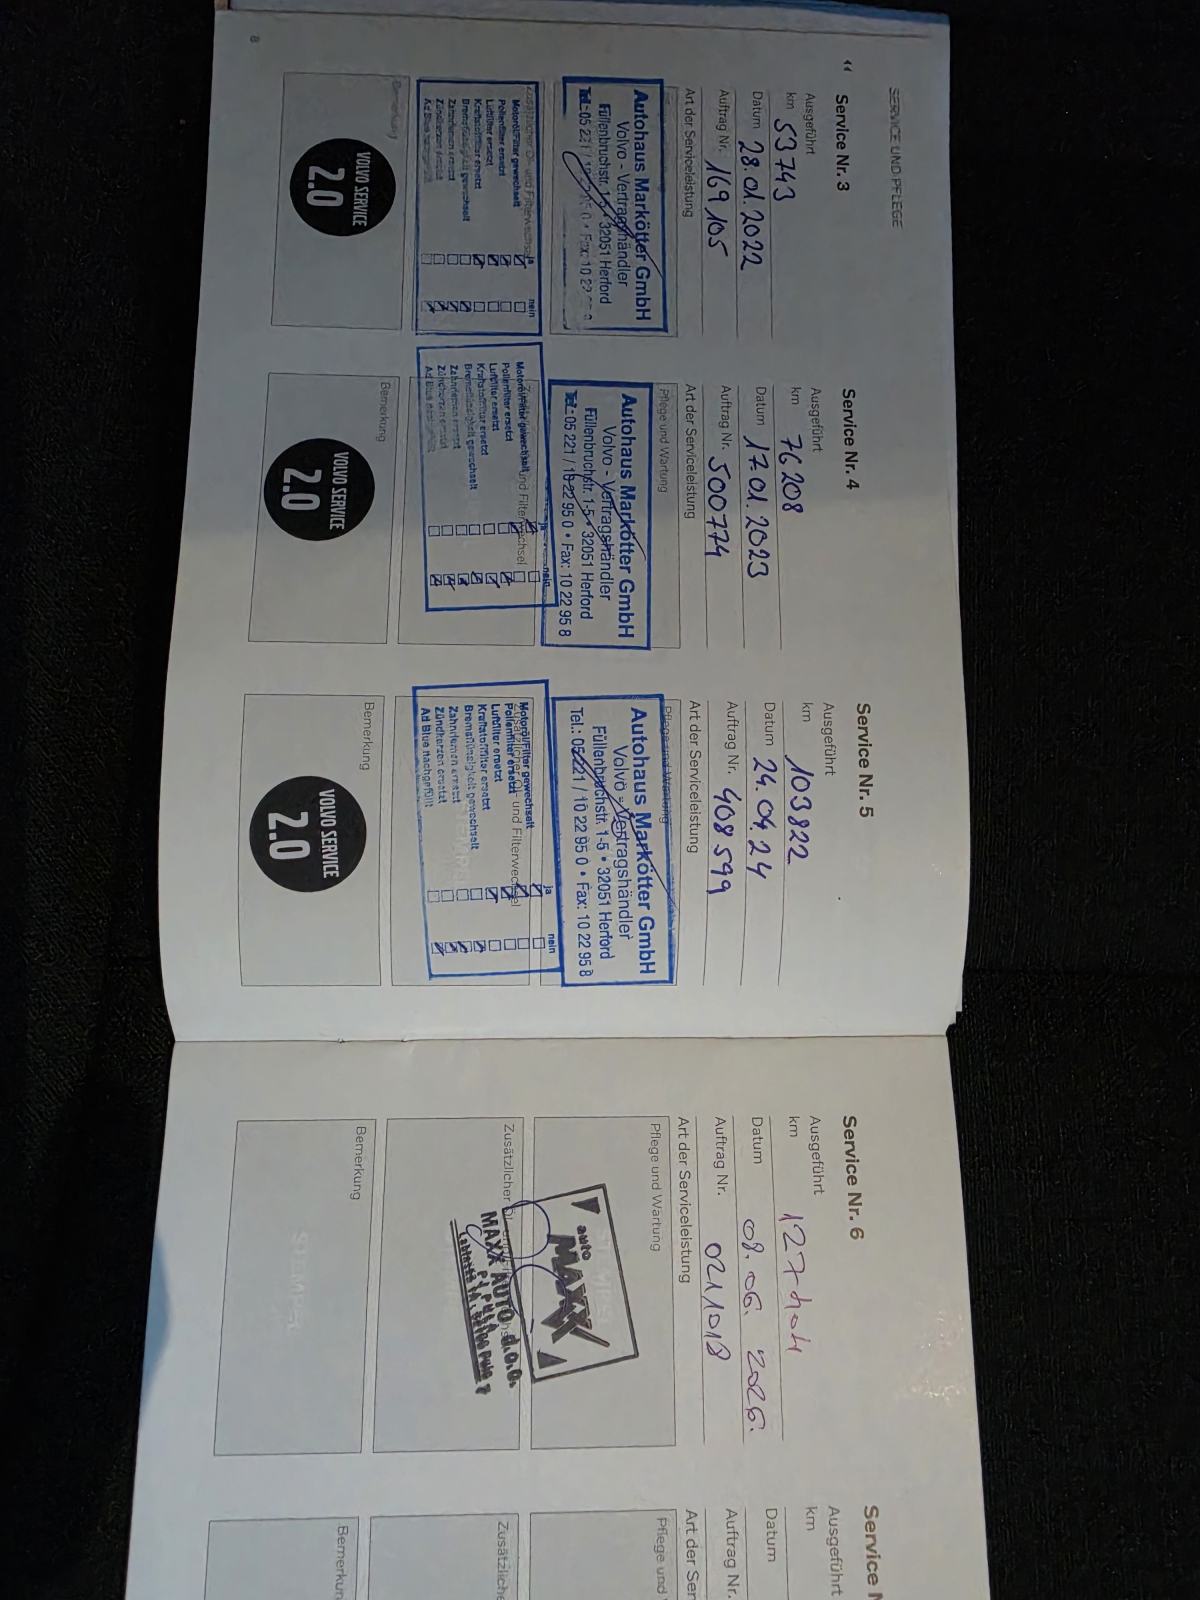 SERVICE UND PFLEGE
Service Nr. 3
Ausgeführt
km 53743
Datum 28.01.2022
Auftrag Nr. 169105
Art der Serviceleistung
Autohaus Markötter GmbH
Volvo - Vertragshändler
Füllenbruchstr. 1-5 • 32051 Herford
Zusätzlicher Öl- und Filterwechsel
ja nein
Motoröl/Filter gewechselt
Pollenfilter ersetzt
Luftfilter ersetzt
Kraftstofffilter ersetzt
Bremsflüssigkeit gewechselt
Zahnriemen ersetzt
Zündkerzen ersetzt
Bemerkung
VOLVO SERVICE
2.0
8
Service Nr. 4
Ausgeführt
km 76208
Datum 17.01.2023
Auftrag Nr. 500774
Art der Serviceleistung
Pflege und Wartung
Autohaus Markötter GmbH
Volvo - Vertragshändler
Füllenbruchstr. 1-5 • 32051 Herford
Tel.: 05 221 / 10 22 95 0 • Fax: 10 22 95 8
Zusätzlicher Öl- und Filterwechsel
ja nein
Motoröl/Filter gewechselt
Pollenfilter ersetzt
Luftfilter ersetzt
Kraftstofffilter ersetzt
Bremsflüssigkeit gewechselt
Zahnriemen ersetzt
Zündkerzen ersetzt
Bemerkung
VOLVO SERVICE
2.0
Service Nr. 5
Ausgeführt
km 103822
Datum 24.04.24
Auftrag Nr. 408599
Art der Serviceleistung
Pflege und Wartung
Autohaus Markötter GmbH
Volvo - Vertragshändler
Füllenbruchstr. 1-5 • 32051 Herford
Tel.: 05221 / 10 22 95 0 • Fax: 10 22 95 8
Zusätzlicher Öl- und Filterwechsel
ja nein
Motoröl/Filter gewechselt
Pollenfilter ersetzt
Luftfilter ersetzt
Kraftstofffilter ersetzt
Bremsflüssigkeit gewechselt
Zahnriemen ersetzt
Zündkerzen ersetzt
Ad Blue nachgefüllt
Bemerkung
VOLVO SERVICE
2.0
Service Nr. 6
Ausgeführt
km
Datum 08. 06.
Auftrag Nr. 0211018
Art der Serviceleistung
Pflege und Wartung
auto
MAXX
Zusätzlicher Öl-
MAXX AUTO d.o.o.
Bemerkung
STEMPEL
Service
Ausgeführt
km
Datum
Auftrag Nr.
Art der
Pflege und
Zusätzliche